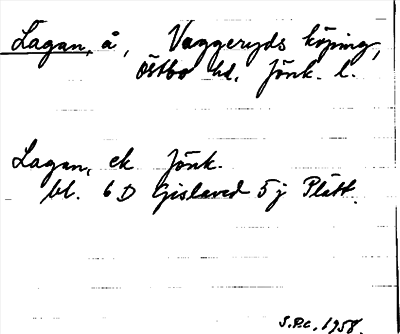 Lagan, å, Vaggeryds köping,
Östbo hd. Jönk. l.
Lagan, ek Jönk.
bl. 6 D Gislaved 5 j Plått.
S.P.C. 1958.